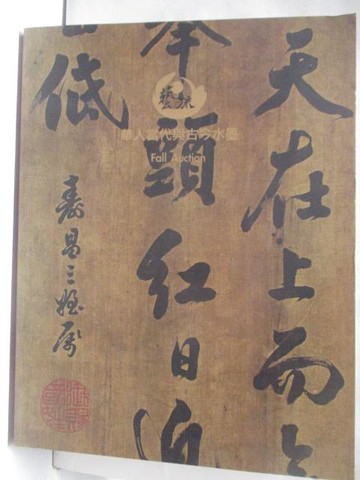 天在上而
舉頭紅日近
低
壽昌三
華人當代與古今水墨
Fall Auction